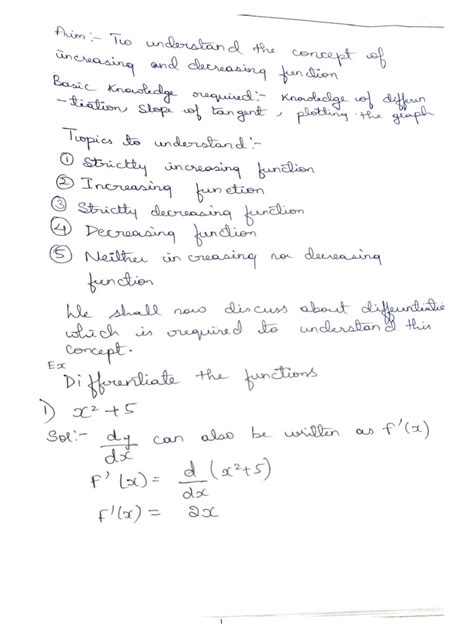 Aim:- To understand the concept of
increasing and decreasing function
Basic Knowledge required:- Knowledge of differen
-tiation, slope of tangent, plotting the graph
Topics to understand:-
① Strictly increasing function
② Increasing function
③ Strictly decreasing function
④ Decreasing function
⑤ Neither increasing nor decreasing
function
We shall now discuss about differentiatio
which is required to understand this
concept.
Ex
Differentiate the functions
1) x²+5
Sol:- dy/dx can also be written as f'(x)
f'(x) = d/dx (x²+5)
f'(x) = 2x
1